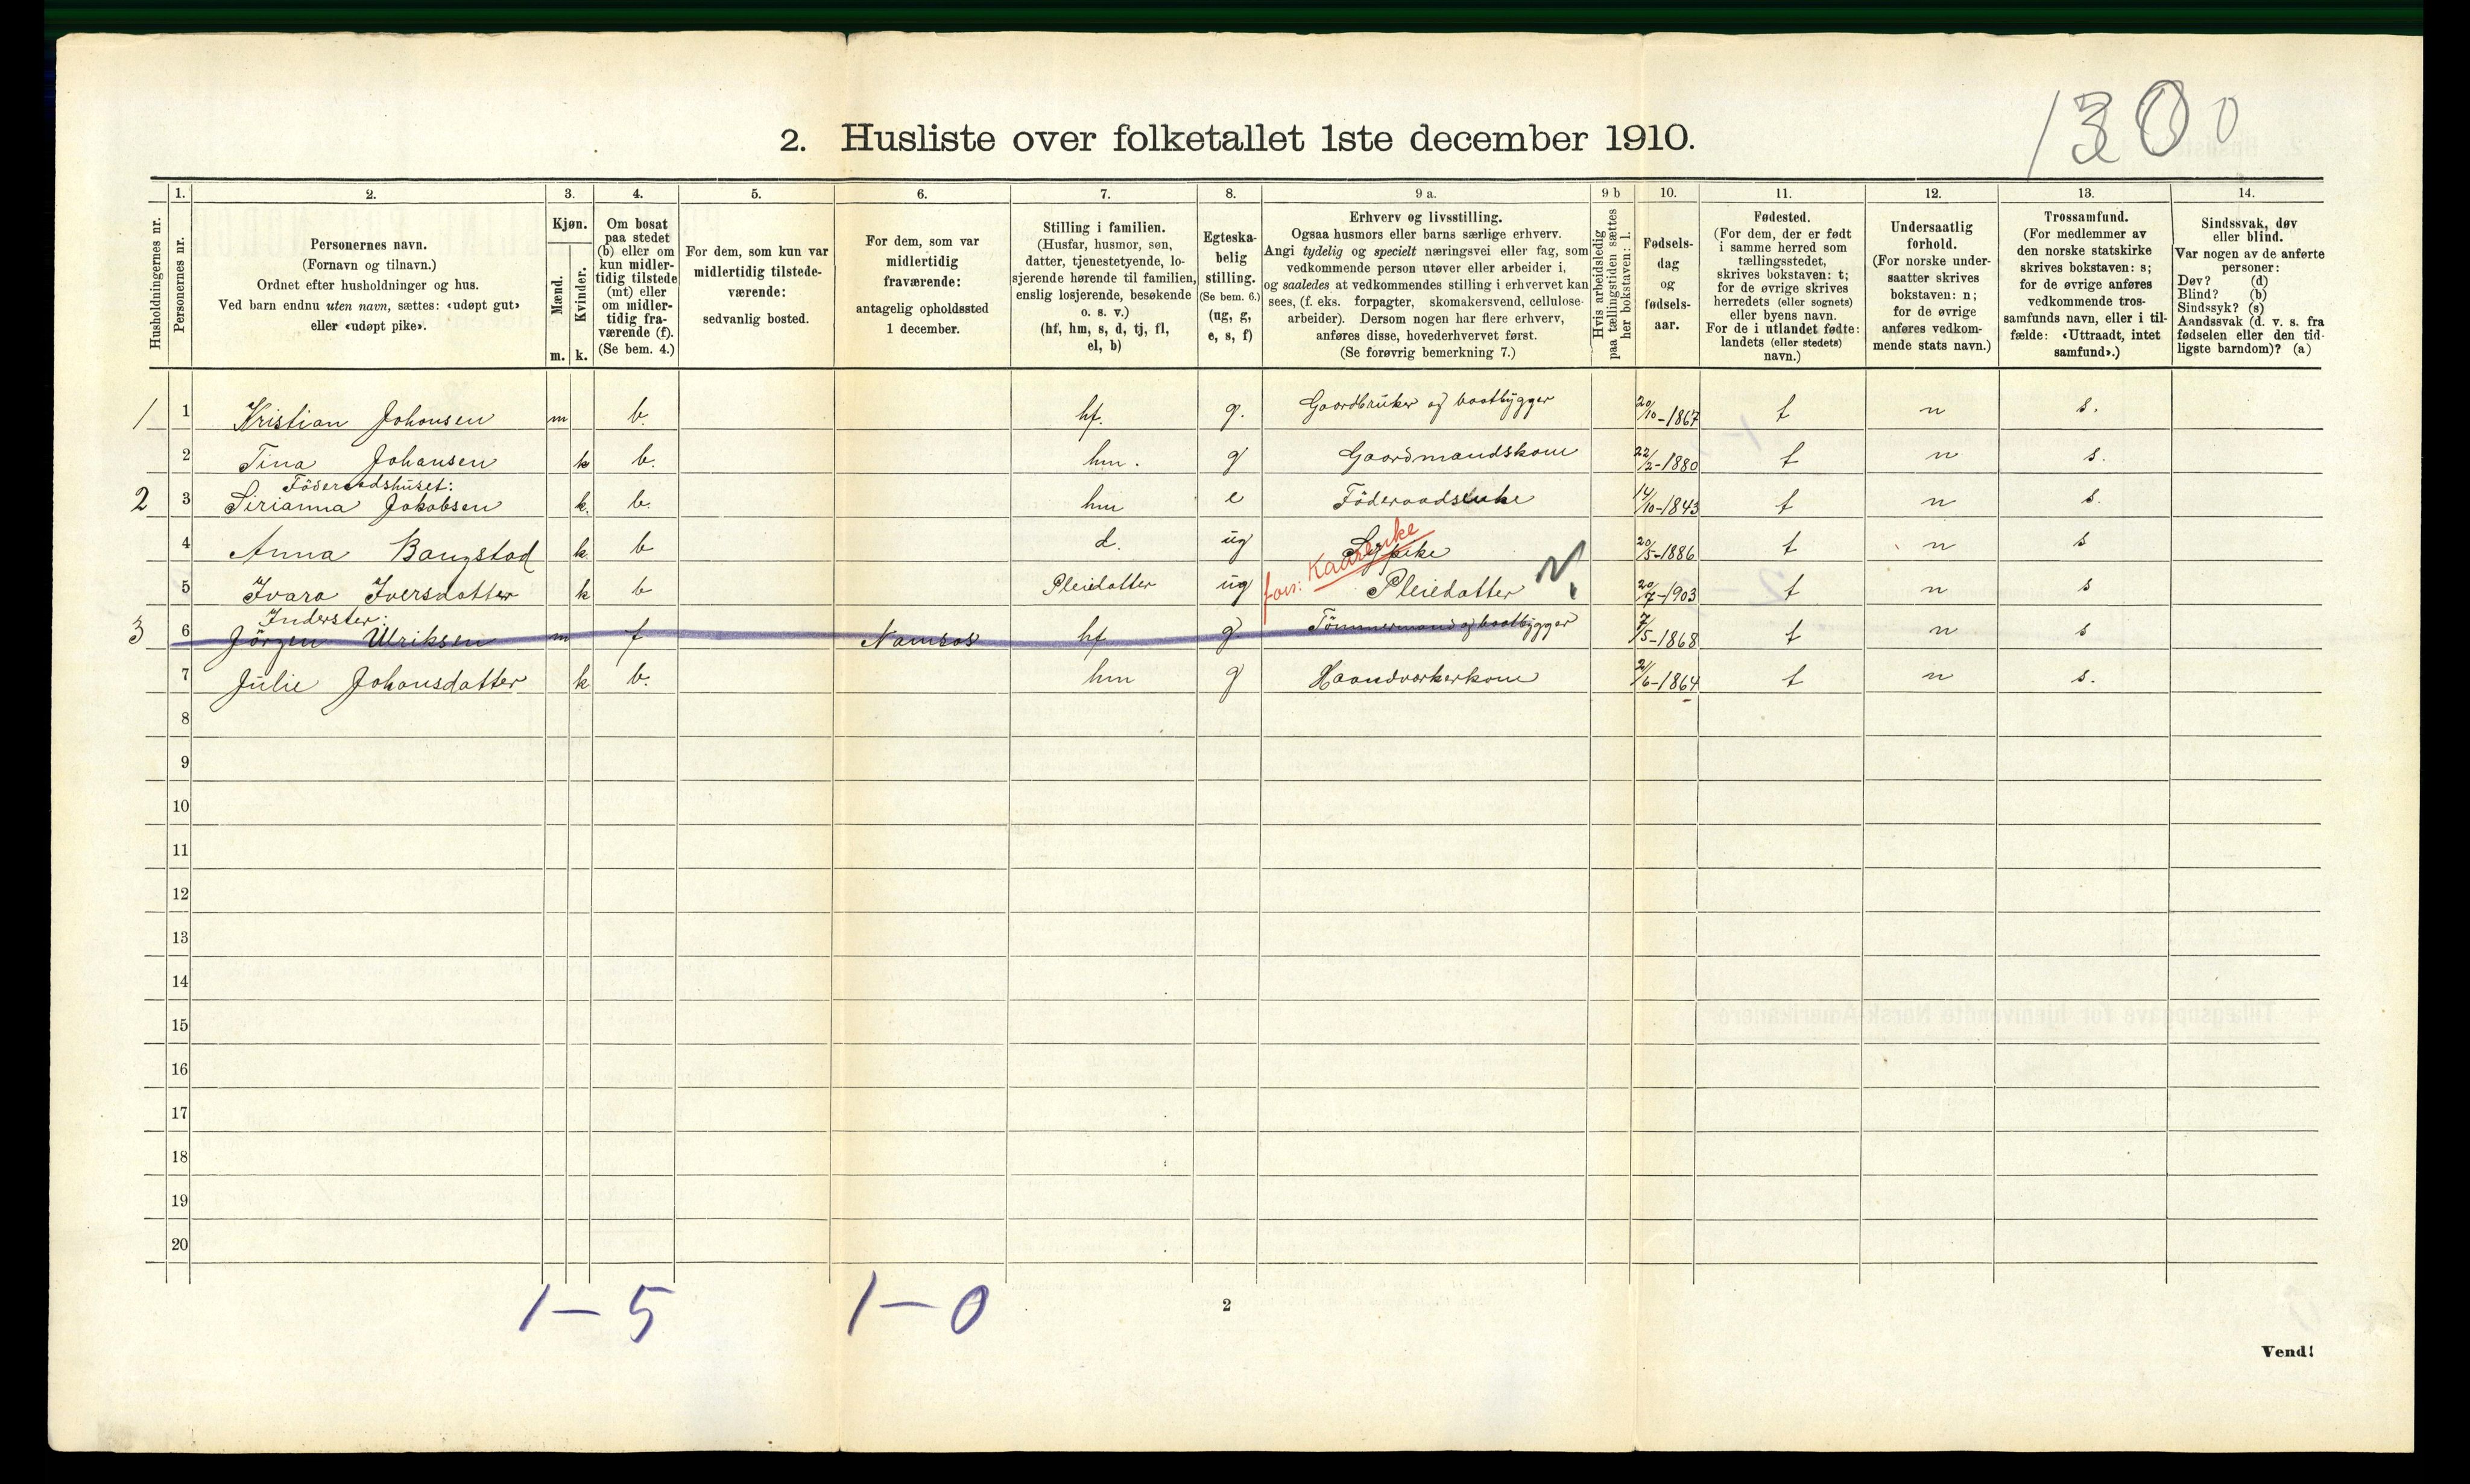 1300
2. Husliste over folketallet 1ste december 1910.
Husholdningernes nr.
1.
Personernes nr.
2.
Personernes navn.
(Fornavn og tilnavn.)
Ordnet efter husholdninger og hus.
Ved barn endnu uten navn, sættes: «udøpt gut»
eller «udøpt pike».
3.
Kjøn.
Mænd.
Kvinder.
m. k.
4.
Om bosat
paa stedet
(b) eller om
kun midler-
tidig tilstede
(mt) eller
om midler-
tidig fra-
værende (f).
(Se bem. 4.)
5.
For dem, som kun var
midlertidig tilstede-
værende:
sedvanlig bosted.
6.
For dem, som var
midlertidig
fraværende:
antagelig opholdssted
1 december.
7.
Stilling i familien.
(Husfar, husmor, søn,
datter, tjenestetyende, lo-
sjerende hørende til familien,
enslig losjerende, besøkende
o. s. v.)
(hf, hm, s, d, tj, fl,
el, b)
8.
Egteska-
belig
stilling.
(Se bem. 6.)
(ug, g,
e, s, f)
9 a.
Erhverv og livsstilling.
Ogsaa husmors eller barns særlige erhverv.
Angi tydelig og specielt næringsvei eller fag, som
vedkommende person utøver eller arbeider i,
og saaledes at vedkommendes stilling i erhvervet kan
sees, (f. eks. forpagter, skomakersvend, cellulose-
arbeider). Dersom nogen har flere erhverv,
anføres disse, hovederhvervet først.
(Se forøvrig bemerkning 7.)
9 b
Hvis arbeidsledig
paa tællingstiden sættes
her bokstaven: l.
10.
Fødsels-
dag
og
fødsels-
aar.
11.
Fødested.
(For dem, der er født
i samme herred som
tællingsstedet,
skrives bokstaven: t;
for de øvrige skrives
herredets (eller sognets)
eller byens navn.
For de i utlandet fødte:
landets (eller stedets)
navn.)
12.
Undersaatlig
forhold.
(For norske under-
saatter skrives
bokstaven: n;
for de øvrige
anføres vedkom-
mende stats navn.)
13.
Trossamfund.
(For medlemmer av
den norske statskirke
skrives bokstaven: s;
for de øvrige anføres
vedkommende tros-
samfunds navn, eller i til-
fælde: «Uttraadt, intet
samfund».)
14.
Sindssvak, døv
eller blind.
Var nogen av de anførte
personer:
Døv? (d)
Blind? (b)
Sindssyk? (s)
Aandssvak (d. v. s. fra
fødselen eller den tid-
ligste barndom)? (a)
1 1 Kristian Johansen m b. hf. g. Gaardbruker og baatbygger 20/10-1867 t n s.
2 Tina Johansen k b. hm. g Gaardmandskone 22/2-1880 t n s.
Föderaadshuset:
2 3 Sirianna Jakobsen k. b. hm e Föderaadsenke 14/10-1843 t n s.
4 Anna Bangstad k b d. ug Sypike 20/5-1886 t n s
fors: Kaarenke
5 Ivara Iversdatter k b Pleiedatter ug Pleiedatter 20/7-1903 t n s
Inderster:
3 6 Jörgen Ulriksen m f Namsos hf g Tömmermand og baatbygger 7/5-1868 t n s
7 Julie Johansdatter k b. hm g Haandverkerkone 21/6-1864 t n s.
8
9
10
11
12
13
14
15
16
17
18
19
20
1-5 1-0
2
Vend!